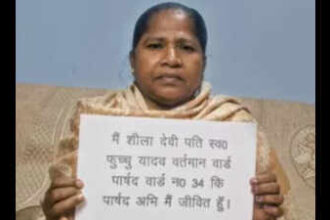 मैं शीला देवी पति स्व0
फुच्चु यादव वर्तमान वार्ड
पार्षद वार्ड न0 34 कि
पार्षद अभि मैं जीवित हूँ।